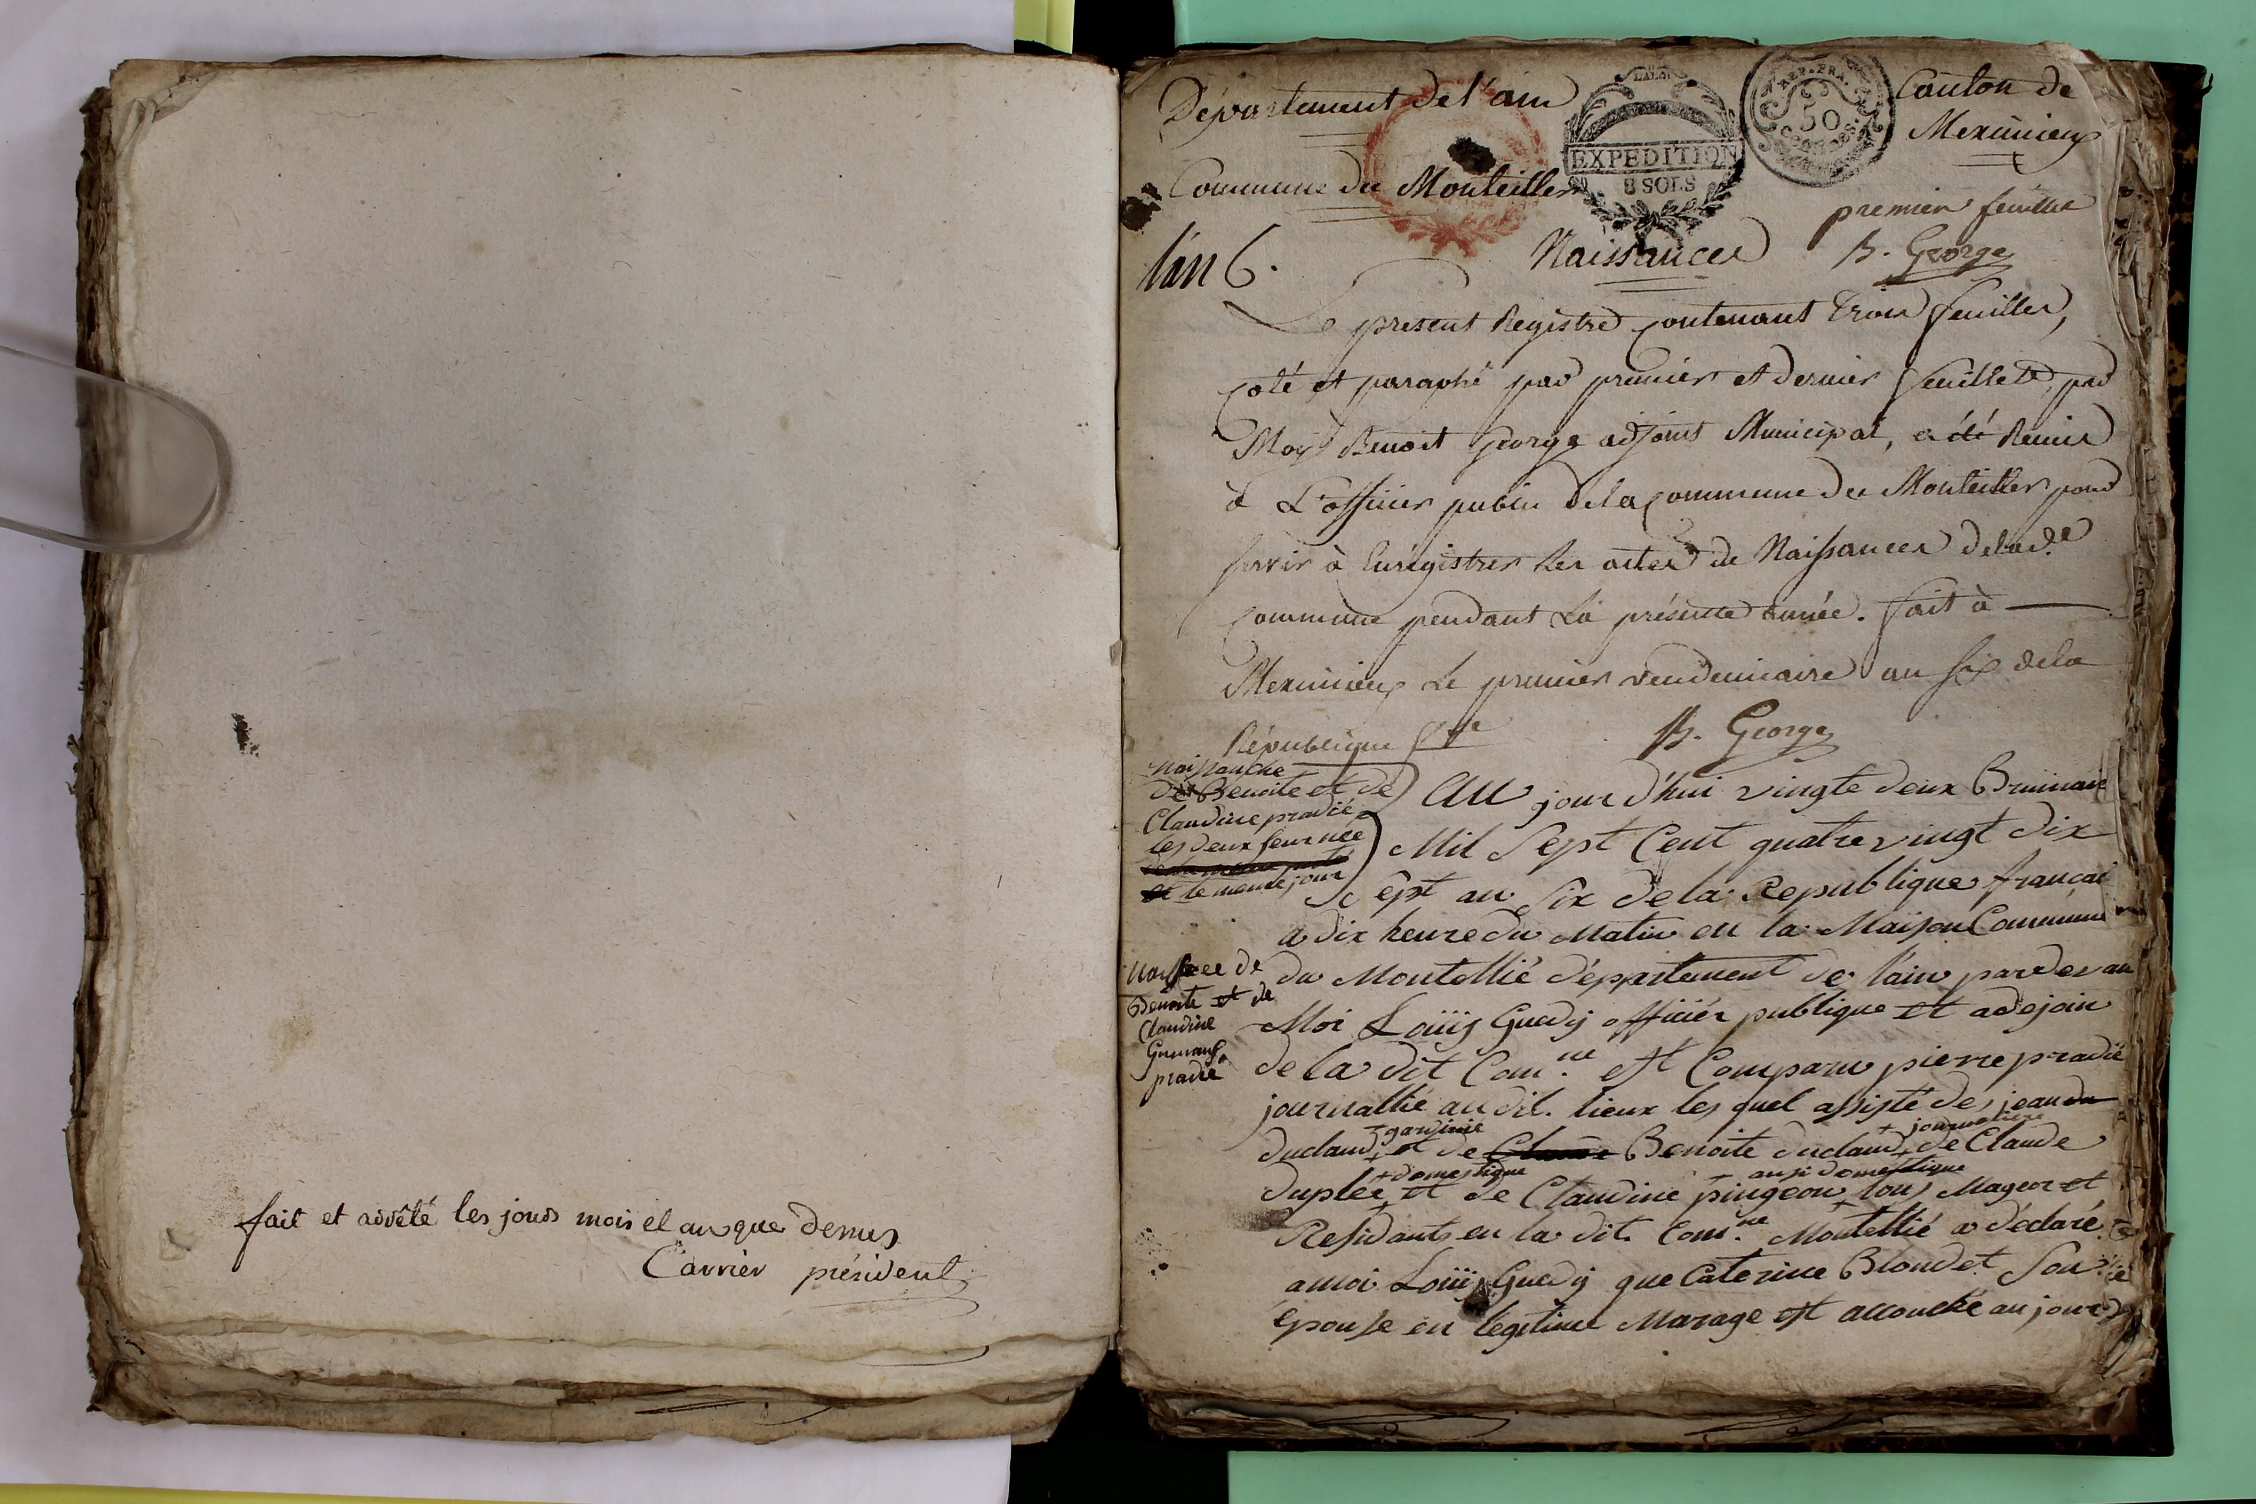 fait et arrêté les jours mois et an que dessus
Carrier président
Département de l'ain
Canton de
Meximieux
Commune du Montellier
EXPEDITION
8 SOLS
REP. FRA.
50
premier feuillet
B. George
l'an 6.
Naissances
Le present Registre contenant trois feuilles,
coté et paraphé par premier et dernier feuillets, par
Moy Benoit George adjoint Municipal, a été Remis
à L'officier public de la commune du Montellier pour
servir à Enrégistrer les actes de Naissances de lad.e
Commune pendant La présente année. fait à
Meximieux Le premier vendemiaire an six de la
République f.se
B. George
Naissanche
de Benoite et de
Claudine pradié
les deux feur née
et le meme jour
Naissce de
Benoite et de
Claudine
pradié
Au jour d'hui vingte deux Brumaire
Mil Sept Cent quatre vingt dix
Sept an Six de la Republique francai
a dix heure du Matin en la Maison Commune
du Montellié département de l'ain par devan
Moi Loüis Guedy officiér publique et adejoin
de la dit Com.ne est Comparu pierre pradié
journallié au dit lieux les quel assisté de jean du
duclaud + gardinié et de Benoite duclaud + journaliere de Claude
duplée + domestique et de Claudine pingeon + ausi domestique tous Mageor et
Residants en la dit Com.ne Montellié a déclaré
a moi Loüis Guedy que Caterine Blondet Son
épouse en légitime Marage est accouchée au jour d